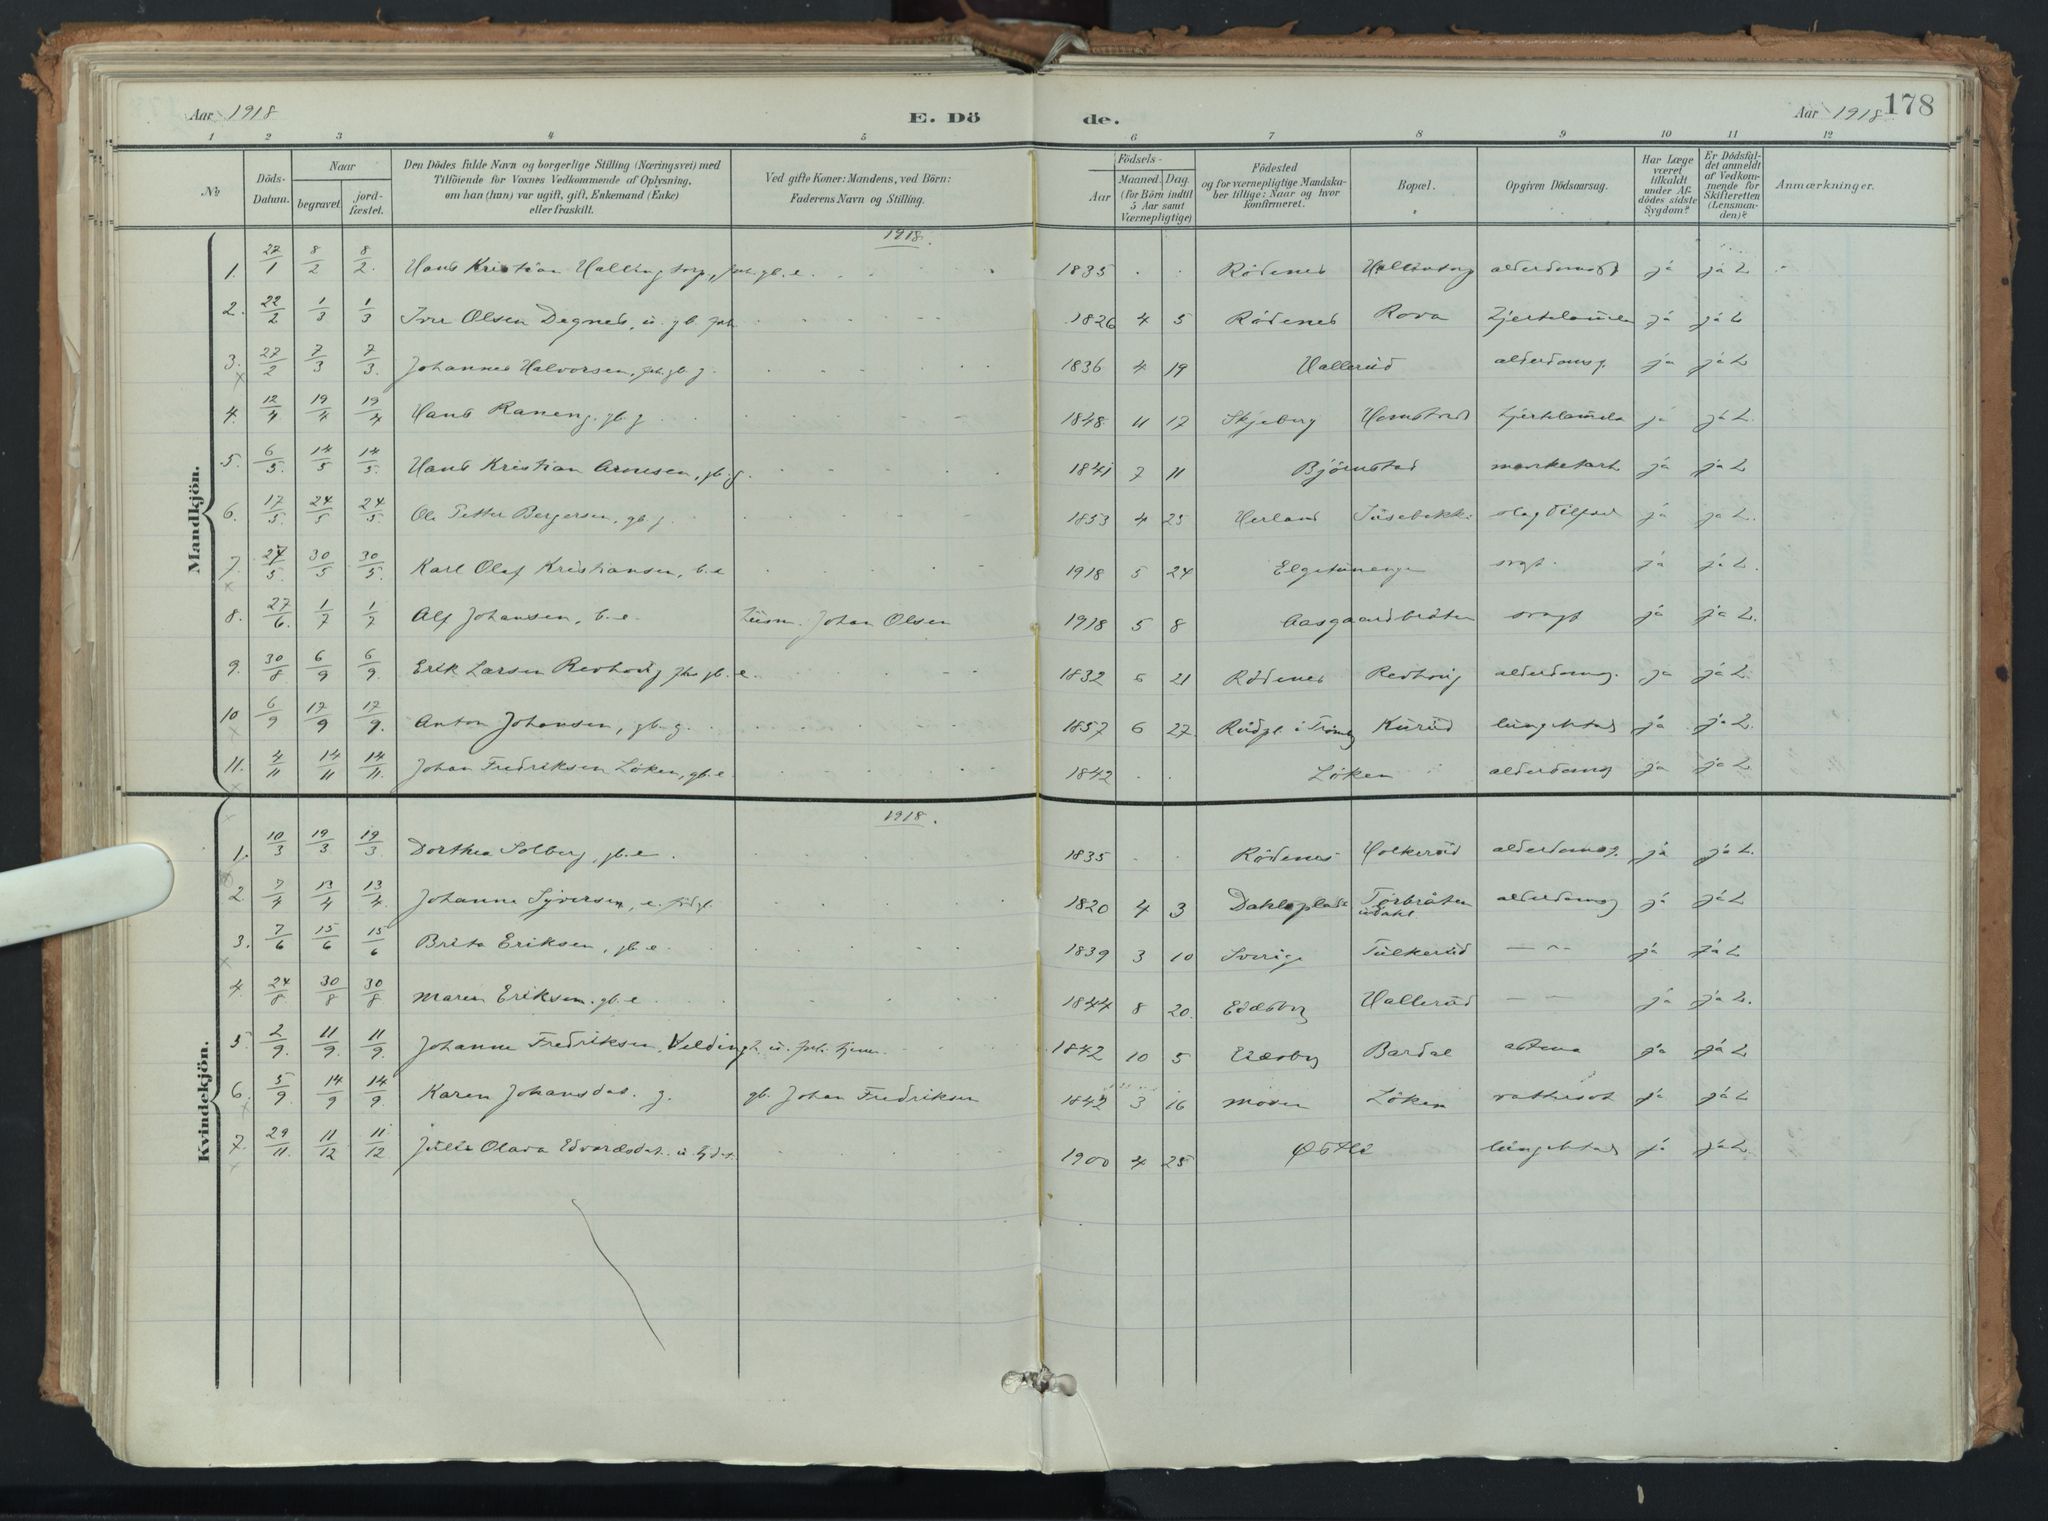 Aar 1918
E. Dö
de.
Aar 1918
178
1 2 3 4 5 6 7 8 9 10 11 12
No
Döds-Datum.
Naar
begravet.
jord-fæstet.
Den Dödes fulde Navn og borgerlige Stilling (Næringsvei) med
Tilföiende for Voxnes Vedkommende af Oplysning,
om han (hun) var ugift, gift, Enkemand (Enke)
eller fraskilt.
Ved gifte Koner: Mandens, ved Börn:
Faderens Navn og Stilling.
Födsels-
Aar
Maaned. Dag.
(for Börn indtil
5 Aar samt
Værnepligtige)
Födested
og for værnepligtige Mandska-
ber tillige: Naar og hvor
konfirmeret.
Bopæl.
Opgiven Dödsaarsag.
Har Læge
været
tilkaldt
under Af-
dödes sidste
Sygdom?
Er Dödsfal-
det anmeldt
af Vedkom-
mende for
Skifteretten
(Lensman-
den)?
Anmærkninger.
Mandkjön.
1918.
1. 27/1 8/2 8/2. Hans Kristian Hallingtorp, gb. e. 1835 Rödenes ja ja L
2. 22/2 1/3 1/3 Iver Olsen Degnes, u. gb. 1826 4 5 Rödenes Rova ja ja L
3. 27/2 7/3 7/3. Johannes Halvorsen, gb. g. 1836 4 19 Hallerud alderdomsf. ja ja L
4. 12/4 19/4 19/4 Hans Raneng. gb. g 1848 11 17 Skjeberg ja ja L.
5. 6/5. 14/5 14/5. Hans Kristian Arnesen, gb. g. 1841 7 11 Björnstad ja ja L
6. 17/5. 24/5 24/5. Ole Petter Bergersen, gb. g. 1853 4 25 Herland ja ja L.
7. 27/5. 30/5 30/5. Karl Olaf Kristiansen, b. e 1918 5 24 svagt. ja ja L.
8. 27/6. 1/7 1/7 Alf Johansen, b. e. Johan Olsen 1918 5 8 Aasgaardbråten svagt ja ja L.
9. 30/8 6/9 6/9. Erik Larsen gb. e. 1832 6 21 Rödenes alderdomsg. ja ja L.
10 6/9 17/9 17/9. Anton Johansen, gb. g. 1857 6 27 Kurud ja ja L.
11. 4/11 14/11 14/11. Johan Fredriksen Löken, gb. e. 1842 Löken alderdomsg ja ja L
Kvindekjön.
1918.
1. 10/3 19/3 19/3. Dorthea Solberg, gb. e. 1835 Rödenes Holkerud alderdomsg. ja ja L.
2. 7/4 13/4 13/4. Johanne Syversen, e. 1820 4 3 Torbråten alderdomsg ja ja L
3. 7/6 15/6 15/6 Brita Eriksen, gb. e. 1839 3 10 Sverige — " — ja ja L
4. 24/8 30/8 30/8 Maren Eriksen. gb. e. 1844 8 20. Eidsberg Hallerud — " — ja ja L.
5. 2/9. 11/9. 11/9. Johanne Fredriksen, u. 1842 10 5 Eidsberg Bardal astma ja ja L
6. 5/9. 14/9 14/9 Karen Johansdat. g. gb. Johan Fredriksen 1842 3 16 Mosen Löken vattersot ja ja L
7. 29/11. 11/12 11/12 Julie Olava Edvardsdat. u. 1900 4 25 Østli ja ja L.